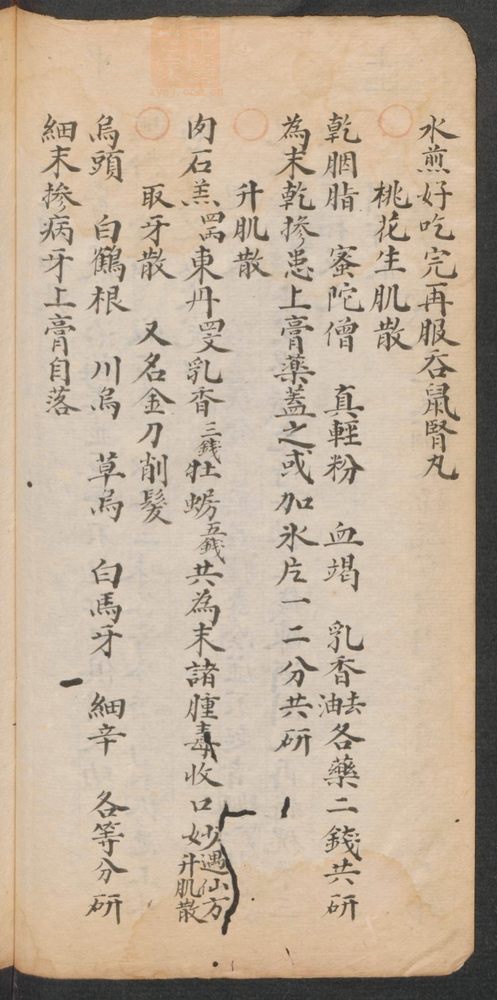 水煎好吃完再服吞鼠腎丸
桃花生肌散
乾胭脂 蜜陀僧 真輕粉 血竭 乳香去油各藥二錢共研
為末乾摻患上膏藥蓋之或加氷片一二分共研
升肌散
肉石羔四両東丹四文乳香三錢牡蜊五錢共為末諸腫毒收口妙遇仙方升肌散
取牙散 又名金刀削髮
烏頭 白鶴根 川烏 草烏 白馬牙 細辛 各等分研
細末摻病牙上膏自落